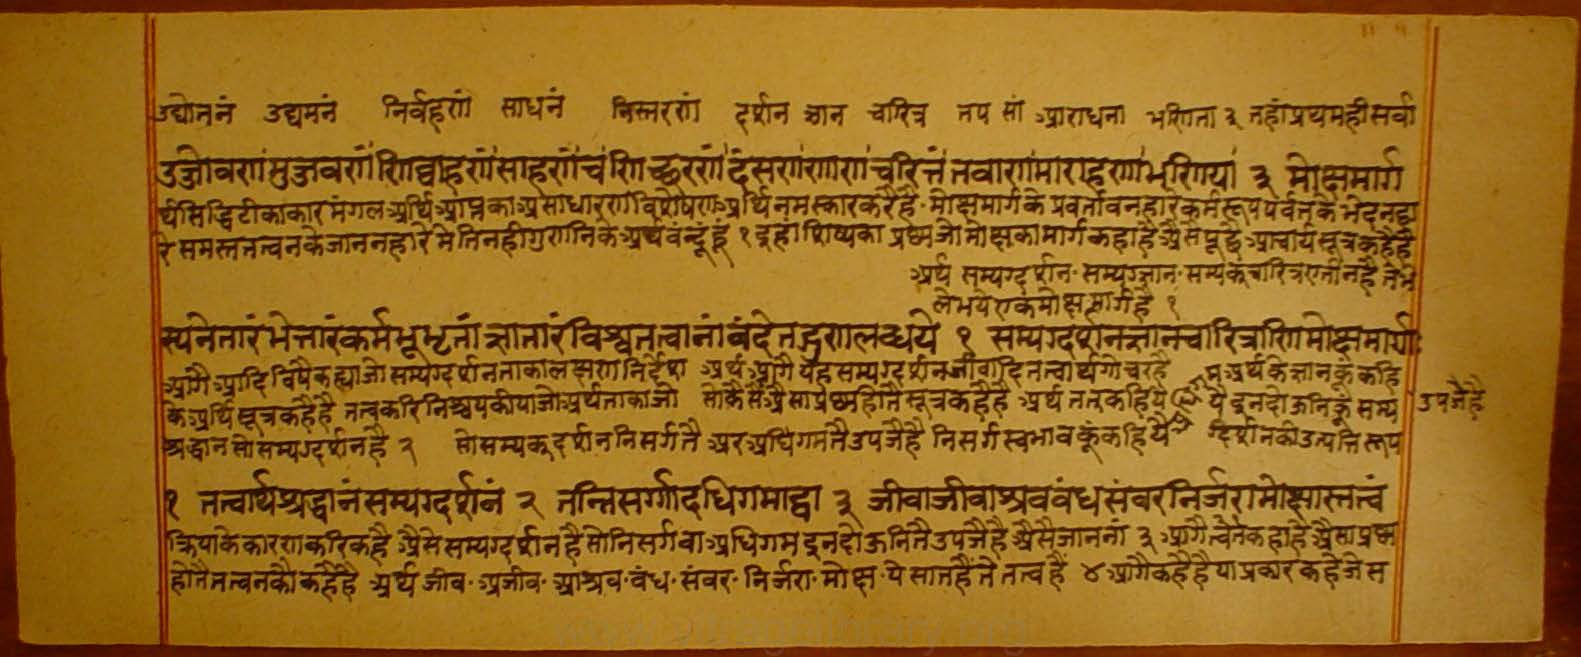 उद्योतनं उद्यमनं निर्वहणं साधनं निस्तरणं दर्शन ज्ञान चारित्र तप सां आराधना भणिता ३ तहां प्रथमही सर्वा
उज्जोवणमुज्जवणं णिव्वाहणं साहणं च णिच्छरणं दंसणणाणचरित्तं तवाणमाराहणा भणिया ३ मोक्षमार्ग
र्थसिद्धि टीकाकार मंगल अर्थि आप्त का असाधारण विशेषण अर्थि नमस्कार करै है मोक्षमार्ग के प्रवर्तावनहारे कर्मरूप पर्वत के भेदनहा
रे समस्त तत्वन के जाननहारे मे तिनही गुणनि के अर्थ वंन्दूं हूं १ इहां शिष्य का प्रश्न जो मोक्ष का मार्ग कहा है अैसे पूछै आचार्य सूत्र कहै है
अर्थ सम्यग्दर्शन सम्यग्ज्ञान सम्यक्चारित्र ए तीन है ते भे
ले भये एक मोक्षमार्ग है १
स्य नेतारं भेत्तारं कर्मभूभृतां ज्ञातारं विश्वतत्वानां वंदे तद्गुणलब्धये १ सम्यग्दर्शनज्ञानचारित्राणि मोक्षमार्गः
आगै आदि विषै कह्या जो सम्यग्दर्शन ताका लक्षण निर्देश अर्थ आगै येह सम्यग्दर्शन जीवादि तत्वार्थ गोचर है अर्थ के ज्ञान कूं कहि
के अर्थि सूत्र कहै है तत्व करि निश्चय कीया जो अर्थ ताका जो सो कैसैं अैसा प्रश्न होतै सूत्र कहै है अर्थ कहिये ये इन दोऊनि कूं सम्य उपजै है
श्रद्धान सो सम्यग्दर्शन है २ सो सम्यक् दर्शन निसर्ग तै अर अधिगम तै उपजै है निसर्ग स्वभाव कूं कहिये ग्दर्शन की उत्पत्ति रूप
१ तत्वार्थश्रद्धानं सम्यग्दर्शनं २ तन्निसर्गादधिगमाद्वा ३ जीवाजीवाश्रवबंधसंवरनिर्जरामोक्षास्तत्वं
क्रिया के कारण करि कहै अैसे सम्यग्दर्शन है सो निसर्ग वा अधिगम इन दोऊनि तै उपजै है अैसै जाननां ३ आगै कहा है अैसा प्रश्न
होतै तत्वन कौ कहै है अर्थ जीव अजीव आश्रव बंध संवर निर्जरा मोक्ष ये सात हैं ते तत्व हैं ४ आगै कहै है या प्रकार कहे जे स